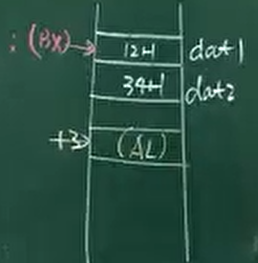 : (BX) → 12H dat1
34H dat2
+3 → (AL)